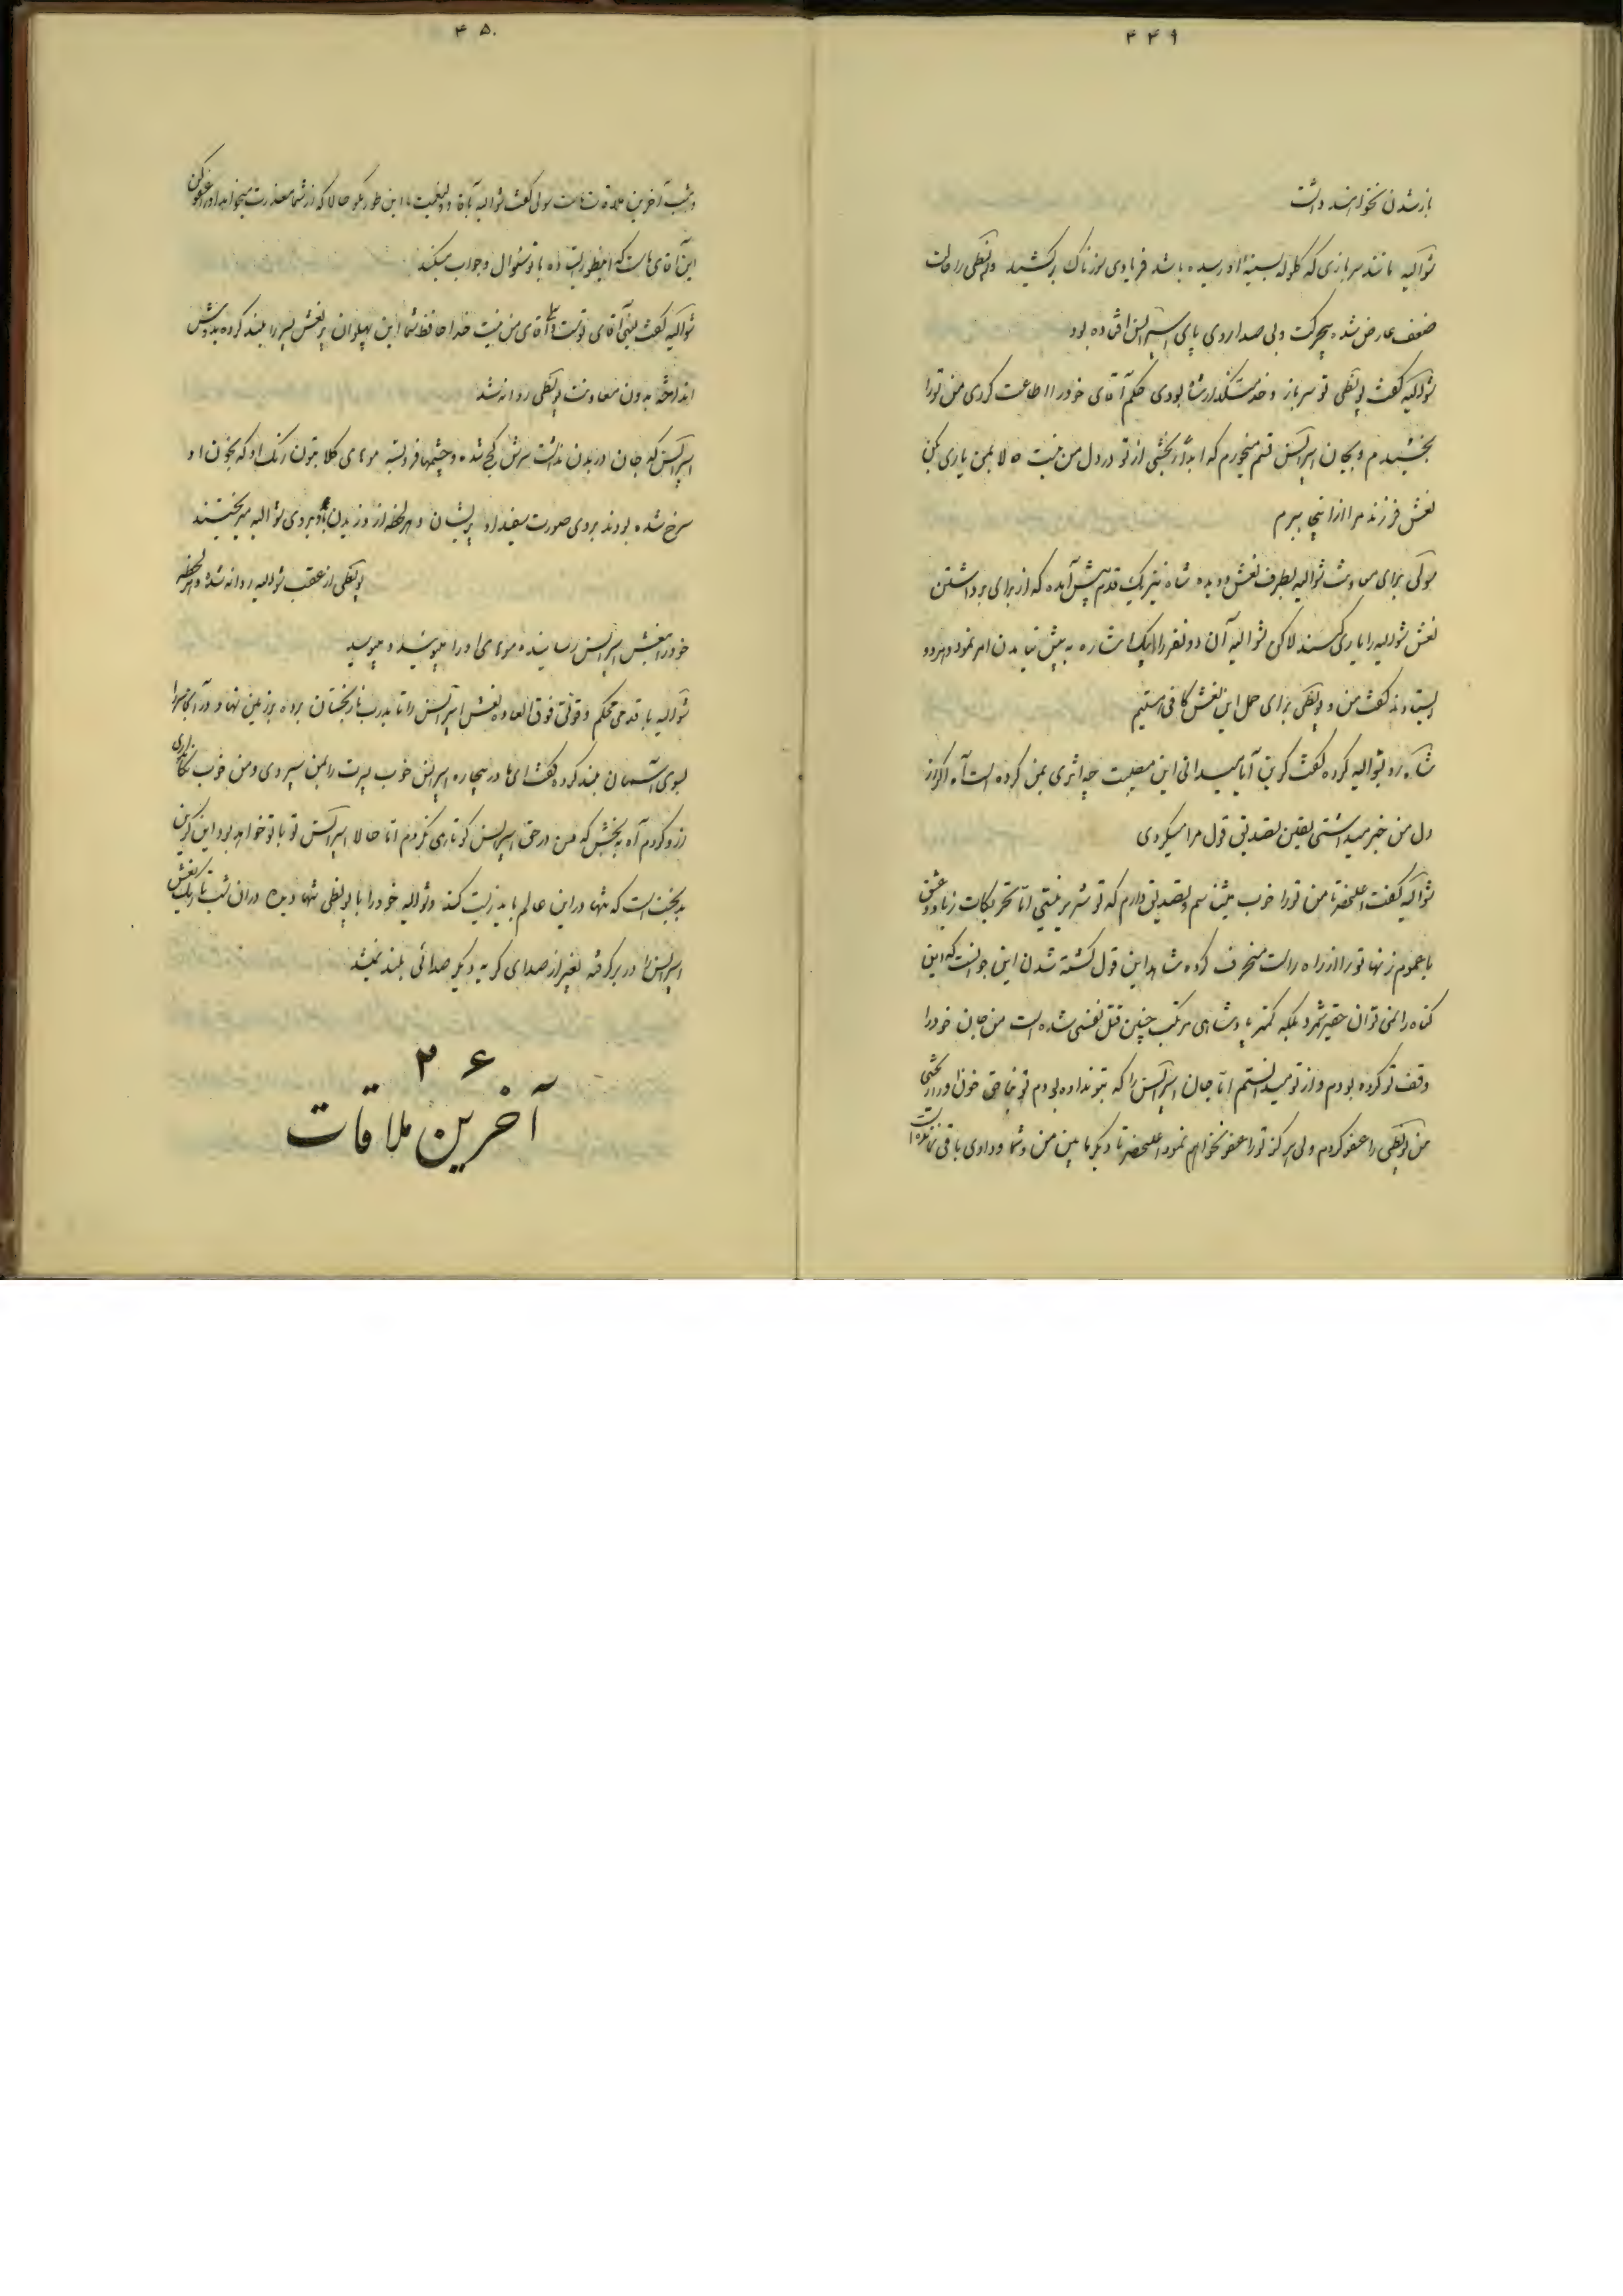 ۴۴۹
باز شدن نخواهند داشت
شوالیه مانند سربازی که گلوله بسینهٔ او رسیده باشد فریادی سوزناک برکشید و لپطی را حالت
ضعف عارض شده بیحرکت و بی صدا روی پای اسپرانس افتاده بود
شوالیه گفت لپطی تو سرباز و خدمتگذار شاه بودی حکم آقای خود را اطاعت کردی من تو را
بخشیدم و بجان اسپرانس قسم میخورم که ابداً رنجشی از تو در دل من نیست حالا بمن یاری بکن
نعش فرزند مرا از اینجا ببرم
برای معاونت شوالیه بطرف نعش دویده شاه نیز یک قدم پیش آمده که از برای برداشتن
نعش شوالیه را یاری کنند لاکن شوالیه آن دو نفر را بیک اشاره به پیش نیامدن امر نمود و هر دو
ایستادند گفت من و لپطی برای حمل این نعش کافی هستیم
شاه رو بشوالیه کرده گفت کرین آیا میدانی این مصیبت چه اثری بمن کرده است آه اگر از
دل من خبر میداشتی یقین تصدیق قول مرا میکردی
شوالیه گفت اعلیحضرتا من تو را خوب میشناسم و تصدیق دارم که تو شریر نیستی اما تحریکات زیاد و عشق
با عموم زنها تو را از راه راست منحرف کرده شاهد این قول کشته شدن این جوانست که این
گناه را نمی توان حقیر شمرد بلکه کمتر پادشاهی مرتکب چنین قتل نفسی شده است من جان خود را
وقف تو کرده بودم و از تو میدانستم اما جان اسپرانس را که بتو نداده بودم تو بناحق خون او را ریختی
من لپطی را عفو کردم ولی هرگز تو را عفو نخواهم نمود اعلیحضرتا دیگر مابین من و شما وداوی باقی نمانده
۴۵۰
آخرین ملاقات ماست سولی گفت شوالیه باآقا و ولینعمت ما این طور مگو حالا که از شما معذرت میخواهد او را عفو کن
این آقای ماست که اینطور ایستاده با تو سئوال و جواب میکند
شوالیه گفت بلی آقای توست ولی آقای من نیست خدا حافظ شما این پهلوان پیر نعش پسر را بلند کرده بدوش
انداخته بدون معاونت لپطی روانه شد
اسپرانس که جان در بدن نداشت سرش کج شده و چشمها فرو بسته موهای گلابتون رنگ او که بخون او
سرخ شده بودند بروی صورت سفید او پریشان و هر لحظه از وزیدن باد بروی شوالیه میریختند
لپطی از عقب شوالیه روانه شده و هر لحظه
خود را بنعش اسپرانس رسانیده موهای او را میبوسید و میبوئید
شوالیه با قدمی محکم و قوتی فوق العاده نعش اسپرانس را تا بدرب نارنجستان برده بر زمین نهاد و در آنجا سر را
بسوی آسمان بلند کرده گفت ای مادر بیچاره اسپرانس خوب پسرت را بمن سپردی و من خوب نگاهداری
از او کردم آه ببخش که من در حق اسپرانس کوتاهی نکردم اما حالا اسپرانس تو با تو خواهد بود این کرین
بدبخت است که تنها در این عالم باید زیست کند و شوالیه خود را با لپطی تنها دیده در آن شب تاریک نعش
اسپرانس را در بر گرفته بغیر از صدای گریه دیگر صدائی بلند نمیشد
۲۶
آخرین ملاقات